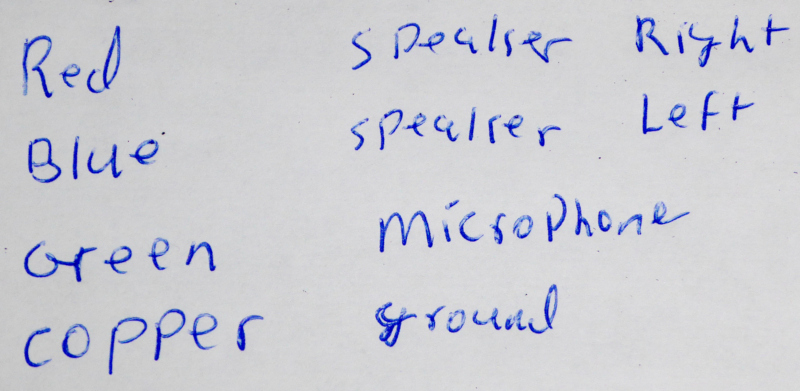 Red speaker Right
Blue speaker Left
Green Microphone
copper ground